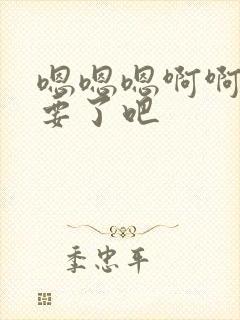 嗯嗯嗯啊啊
要了吧
季忠平